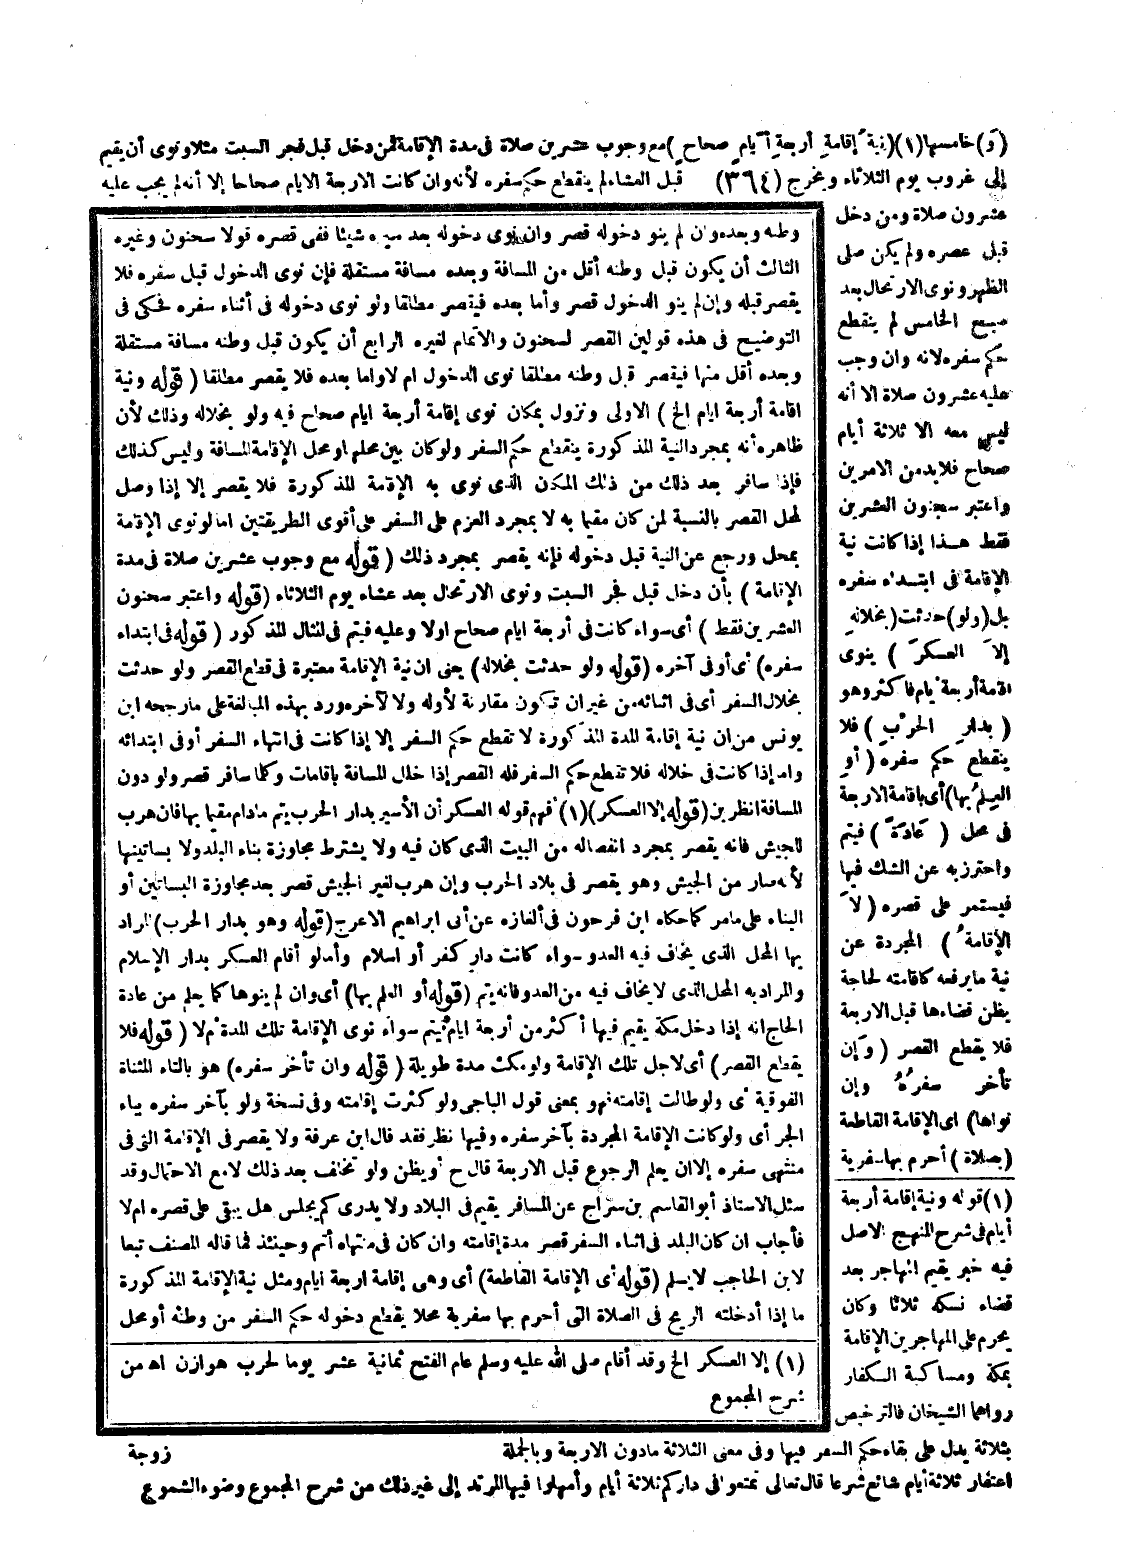 (وَ) خامسها (١) (نِيةُ إقامةِ أربعةِ أيامٍ صحاحٍ) مع وجوب عشرين صلاة فى مدة الإقامة فمن دخل قبل فجر السبت مثلا ونوى أن يقيم
إلى غروب يوم الثلاثاء ويخرج (٣٦٤) قبل العشاء لم ينقطع حكم سفره لأنه وان كانت الاربعة الايام صحاحا إلا أنه لم يجب عليه
عشرون صلاة ومن دخل
قبل عصره ولم يكن صلى
الظهر ونوى الارتحال بعد
صبح الخامس لم ينقطع
حكم سفره لانه وان وجب
عليه عشرون صلاة الا أنه
ليس معه الا ثلاثة أيام
صحاح فلابد من الامرين
واعتبر سحنون العشرين
فقط هذا إذا كانت نية
الإقامة فى ابتداء سفره
بل (ولو) حدثت (بخلالهِ
إلاَّ العسكرَ) ينوى
اقامة أربعة أيام فأكثر وهو
(بدارِ الحرْبِ) فلا
ينقطع حكم سفره (أوِ
العِلمُ بها) أى باقامة الاربعة
فى محل (عادَةً) فيتم
واحترز به عن الشك فيها
فيستمر على قصره (لاَ
الأقامةُ) المجردة عن
نية ما يرفعه كاقامته لحاجة
يظن قضاءها قبل الاربعة
فلا يقطع القصر (وَإن
تأخر سفرُهُ وإن
نواها) اى الإقامة القاطعة
(بصلاة) أحرم بها سفرية
(١) قوله ونية إقامة أربعة
أيام فى شرح المنهج الاصل
فيه خبر يقيم المهاجر بعد
قضاء نسكه ثلاثا وكان
يحرم على المهاجرين الإقامة
بمكة ومساكنة الكفار
رواهما الشيخان فالترخيص
بثلاثة يدل على بقاء حكم السفر فيها وفى معنى الثلاثة مادون الاربعة وبالجملة
اعتفار ثلاثة أيام شائع شرعا قال تعالى تمتعوا فى داركم ثلاثة أيام وأمهلوا فيها المرتد إلى غير ذلك من شرح المجموع وضوء الشموع
زوجة
وطنه وبعده وان لم ينو دخوله قصر وان نوى دخوله بعد سيره شيئا ففى قصره قولا سحنون وغيره
الثالث أن يكون قبل وطنه أقل من المسافة وبعده مسافة مستقلة فإن نوى الدخول قبل سفره فلا
يقصر قبله وإن لم ينو الدخول قصر وأما بعده فيقصر مطلقا ولو نوى دخوله فى أثناء سفره فحكى فى
التوضيح فى هذه قولين القصر لسحنون والاتمام لغيره الرابع أن يكون قبل وطنه مسافة مستقلة
وبعده أقل منها فيقصر قبل وطنه مطلقا نوى الدخول ام لا واما بعده فلا يقصر مطلقا (قوله ونية
اقامة أربعة ايام الخ) الاولى ونزول بمكان نوى إقامة أربعة ايام صحاح فيه ولو بخلاله وذلك لأن
ظاهره أنه بمجرد النية المذكورة ينقطع حكم السفر ولو كان بين محله او محل الإقامة المسافة وليس كذلك
فإذا سافر بعد ذلك من ذلك المكان الذى نوى به الإقامة المذكورة فلا يقصر إلا إذا وصل
لمحل القصر بالنسبة لمن كان مقيما به لا بمجرد العزم على السفر على أقوى الطريقتين اما لو نوى الإقامة
بمحل ورجع عن النية قبل دخوله فإنه يقصر بمجرد ذلك (قوله مع وجوب عشرين صلاة فى مدة
الإقامة) بأن دخل قبل فجر السبت ونوى الارتحال بعد عشاء يوم الثلاثاء (قوله واعتبر سحنون
العشرين فقط) أى سواء كانت فى أربعة ايام صحاح اولا وعليه فيتم فى المثال المذكور (قوله فى ابتداء
سفره) أى أو فى آخره (قوله ولو حدثت بخلاله) يعنى ان نية الإقامة معتبرة فى قطع القصر ولو حدثت
بخلال السفر أى فى اثنائه من غير ان تكون مقارنة لأوله ولا لآخره ورد بهذه المبالغة على مارجحه ابن
يونس من ان نية إقامة المدة المذكورة لا تقطع حكم السفر إلا إذا كانت فى انتهاء السفر أو فى ابتدائه
واما إذا كانت فى خلاله فلا تقطع حكم السفر فله القصر إذا خلل المسافة باقامات وكلما سافر قصر ولو دون
المسافة انظر بن (قوله إلا العسكر) (١) فهم قوله العسكر أن الأسير بدار الحرب يتم مادام مقيما بها فان هرب
للجيش فانه يقصر بمجرد انفصاله من البيت الذى كان فيه ولا يشترط مجاوزة بناء البلد ولا بساتينها
لأنه صار من الجيش وهو يقصر فى بلاد الحرب وإن هرب لغير الجيش قصر بعد مجاوزة البساتين أو
البناء على مامر كما حكاه ابن فرحون فى ألغازه عن أبى ابراهيم الاعرج (قوله وهو بدار الحرب) المراد
بها المحل الذى يخاف فيه العدو سواء كانت دار كفر أو اسلام وأما لو أقام العسكر بدار الإسلام
والمراد به المحل الذى لا يخاف فيه من العدو فانه يتم (قوله أو العلم بها) أى وان لم ينوها كما يعلم من عادة
الحاج انه إذا دخل مكة يقيم فيها أكثر من أربعة ايام فيتم سواء نوى الإقامة تلك المدة أم لا (قوله فلا
يقطع القصر) أى لاجل تلك الإقامة ولو مكث مدة طويلة (قوله وان تأخر سفره) هو بالتاء المثناة
الفوقية أى ولو طالت إقامته فهو بمعنى قول الباجى ولو كثرت إقامته وفى نسخة ولو بآخر سفره بباء
الجر أى ولو كانت الإقامة المجردة بآخر سفره وفيها نظر فقد قال ابن عرفة ولا يقصر فى الإقامة التى فى
منتهى سفره إلا ان يعلم الرجوع قبل الاربعة قال ح أو يظن ولو تخلف بعد ذلك لا مع الاحتمال وقد
سئل الاستاذ أبو القاسم بن سراج عن المسافر يقيم فى البلاد ولا يدرى كم يجلس هل يبقى على قصره ام لا
فأجاب ان كان البلد فى اثناء السفر قصر مدة إقامته وان كان فى منتهاه أتم وحينئذ فما قاله المصنف تبعا
لابن الحاجب لا يسلم (قوله أى الإقامة القاطعة) أى وهى إقامة اربعة ايام ومثل نية الإقامة المذكورة
ما إذا أدخلته الريح فى الصلاة التى أحرم بها سفرية محلا يقطع دخوله حكم السفر من وطنه أو محل
(١) إلا العسكر الخ وقد أقام صلى الله عليه وسلم عام الفتح ثمانية عشر يوما لحرب هوازن اه من
شرح المجموع